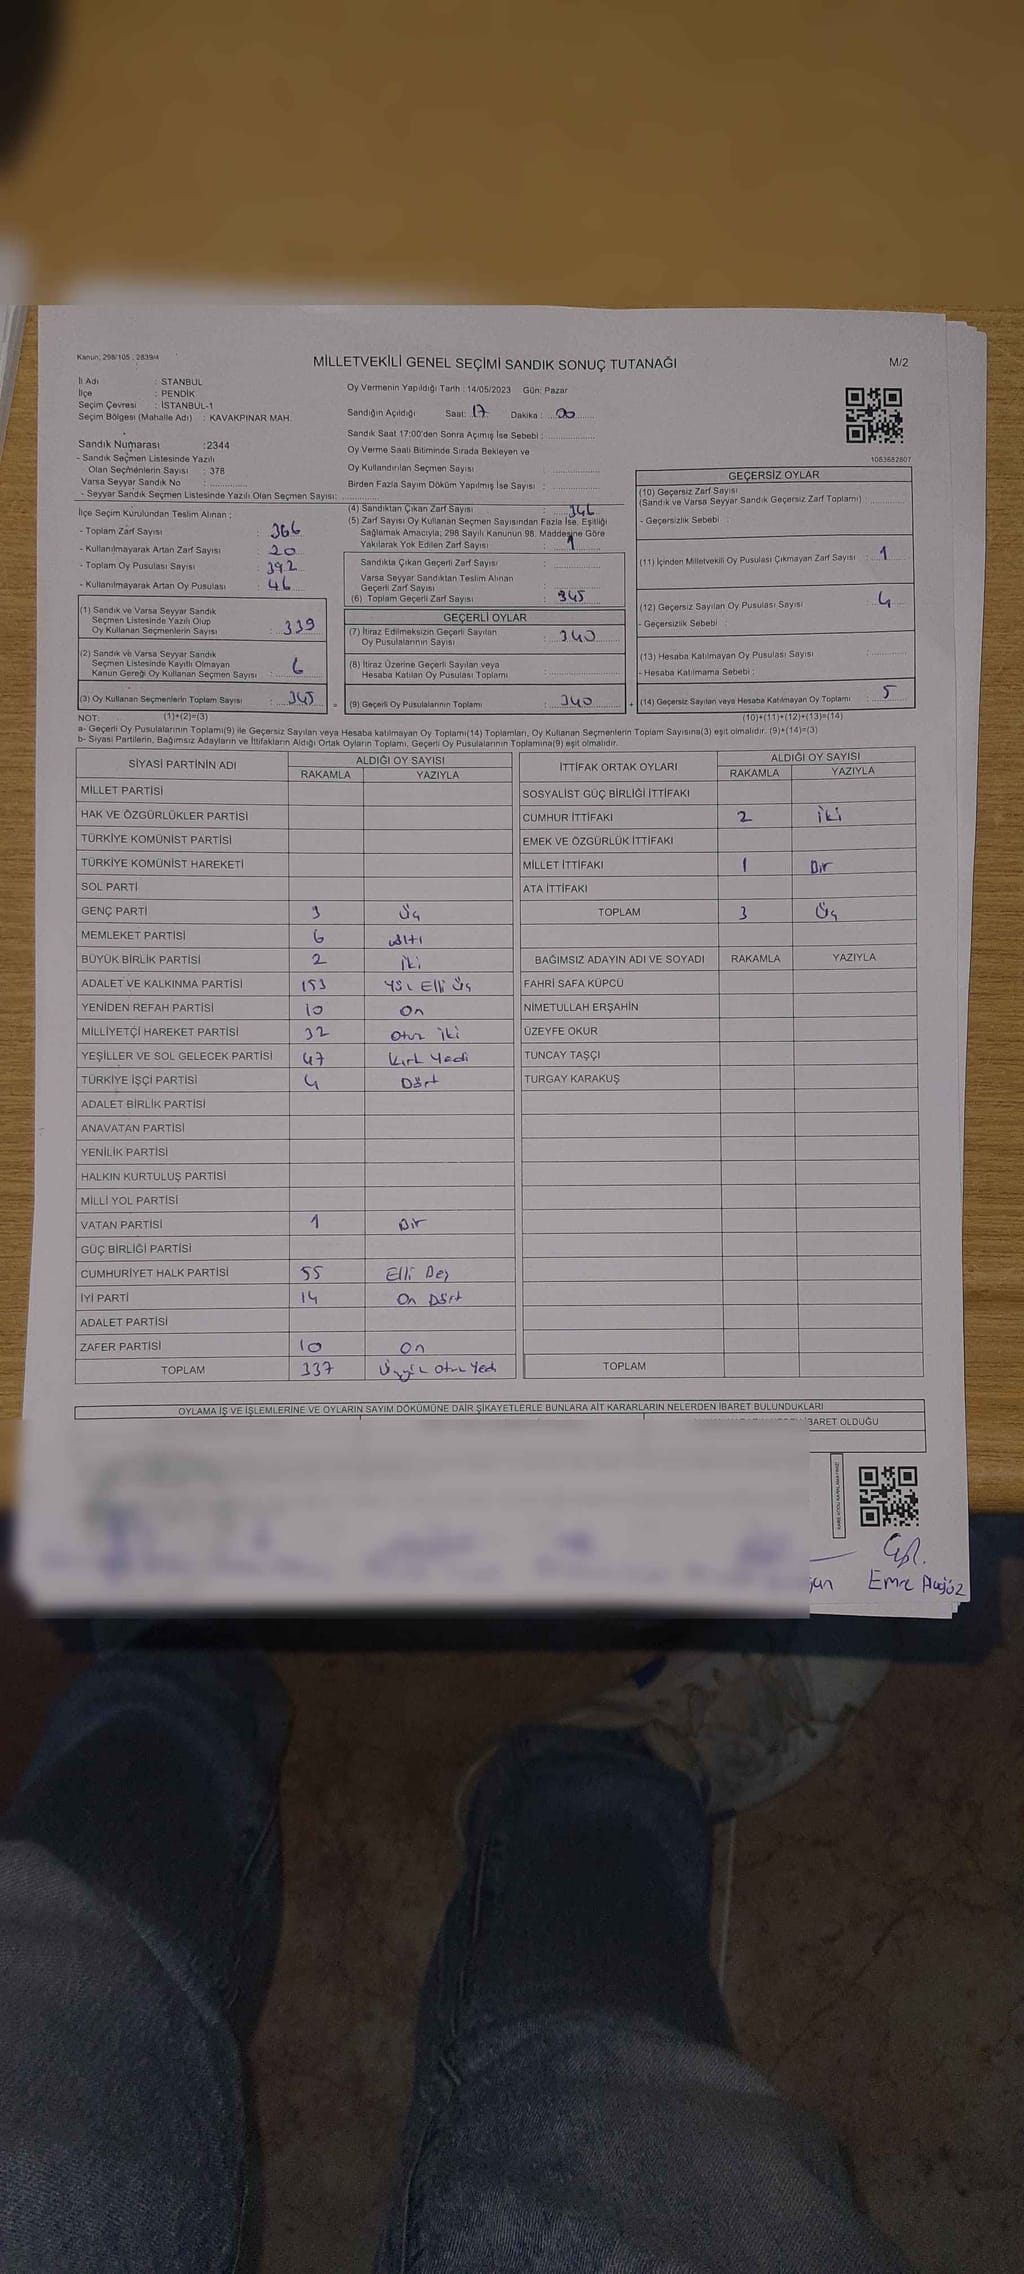 Kanun; 298/105 , 2839/4
MİLLETVEKİLİ GENEL SEÇİMİ SANDIK SONUÇ TUTANAĞI
M/2
İl Adı : STANBUL
İlçe : PENDİK
Seçim Çevresi : İSTANBUL-1
Seçim Bölgesi (Mahalle Adı) : KAVAKPINAR MAH.
Sandık Numarası :2344
- Sandık Seçmen Listesinde Yazılı
Olan Seçmenlerin Sayısı : 378
Varsa Seyyar Sandık No :
- Seyyar Sandık Seçmen Listesinde Yazılı Olan Seçmen Sayısı:
Oy Vermenin Yapıldığı Tarih : 14/05/2023 Gün: Pazar
Sandığın Açıldığı Saat: 17 Dakika : 00
Sandık Saat 17:00'den Sonra Açımış İse Sebebi :
Oy Verme Saati Bitiminde Sırada Bekleyen ve
Oy Kullandırılan Seçmen Sayısı :
Birden Fazla Sayım Döküm Yapılmış İse Sayısı :
1083682807
İlçe Seçim Kurulundan Teslim Alınan ;
- Toplam Zarf Sayısı : 366
- Kullanılmayarak Artan Zarf Sayısı : 20
- Toplam Oy Pusulası Sayısı : 392
- Kullanılmayarak Artan Oy Pusulası : 46
(1) Sandık ve Varsa Seyyar Sandık
Seçmen Listesinde Yazılı Olup
Oy Kullanan Seçmenlerin Sayısı : 339
(2) Sandık ve Varsa Seyyar Sandık
Seçmen Listesinde Kayıtlı Olmayan
Kanun Gereği Oy Kullanan Seçmen Sayısı : 6
(3) Oy Kullanan Seçmenlerin Toplam Sayısı : 345
(1)+(2)=(3)
(4) Sandıktan Çıkan Zarf Sayısı : 346
(5) Zarf Sayısı Oy Kullanan Seçmen Sayısından Fazla İse, Eşitliği
Sağlamak Amacıyla; 298 Sayılı Kanunun 98. Maddesine Göre
Yakılarak Yok Edilen Zarf Sayısı : 1
Sandıkta Çıkan Geçerli Zarf Sayısı :
Varsa Seyyar Sandıktan Teslim Alınan
Geçerli Zarf Sayısı :
(6) Toplam Geçerli Zarf Sayısı : 345
GEÇERLİ OYLAR
(7) İtiraz Edilmeksizin Geçerli Sayılan
Oy Pusulalarının Sayısı : 340
(8) İtiraz Üzerine Geçerli Sayılan veya
Hesaba Katılan Oy Pusulası Toplamı :
= (9) Geçerli Oy Pusulalarının Toplamı : 340 +
GEÇERSİZ OYLAR
(10) Geçersiz Zarf Sayısı
(Sandık ve Varsa Seyyar Sandık Geçersiz Zarf Toplamı) :
- Geçersizlik Sebebi :
(11) İçinden Milletvekili Oy Pusulası Çıkmayan Zarf Sayısı : 1
(12) Geçersiz Sayılan Oy Pusulası Sayısı : 4
- Geçersizlik Sebebi :
(13) Hesaba Katılmayan Oy Pusulası Sayısı :
- Hesaba Katılmama Sebebi :
(14) Geçersiz Sayılan veya Hesaba Katılmayan Oy Toplamı : 5
(10)+(11)+(12)+(13)=(14)
NOT:
a- Geçerli Oy Pusulalarının Toplamı(9) ile Geçersiz Sayılan veya Hesaba katılmayan Oy Toplamı(14) Toplamları, Oy Kullanan Seçmenlerin Toplam Sayısına(3) eşit olmalıdır. (9)+(14)=(3)
b- Siyasi Partilerin, Bağımsız Adayların ve İttifakların Aldığı Ortak Oyların Toplamı, Geçerli Oy Pusulalarının Toplamına(9) eşit olmalıdır.
SİYASİ PARTİNİN ADI ALDIĞI OY SAYISI
RAKAMLA YAZIYLA
MİLLET PARTİSİ
HAK VE ÖZGÜRLÜKLER PARTİSİ
TÜRKİYE KOMÜNİST PARTİSİ
TÜRKİYE KOMÜNİST HAREKETİ
SOL PARTİ
GENÇ PARTİ 3 Üç
MEMLEKET PARTİSİ 6 Altı
BÜYÜK BİRLİK PARTİSİ 2 İki
ADALET VE KALKINMA PARTİSİ 153 Yüz Elli Üç
YENİDEN REFAH PARTİSİ 10 On
MİLLİYETÇİ HAREKET PARTİSİ 32 Otuz İki
YEŞİLLER VE SOL GELECEK PARTİSİ 47 Kırk Yedi
TÜRKİYE İŞÇİ PARTİSİ 4 Dört
ADALET BİRLİK PARTİSİ
ANAVATAN PARTİSİ
YENİLİK PARTİSİ
HALKIN KURTULUŞ PARTİSİ
MİLLİ YOL PARTİSİ
VATAN PARTİSİ 1 Bir
GÜÇ BİRLİĞİ PARTİSİ
CUMHURİYET HALK PARTİSİ 55 Elli Beş
İYİ PARTİ 14 On Dört
ADALET PARTİSİ
ZAFER PARTİSİ 10 On
TOPLAM 337 Üçyüz Otuz Yedi
İTTİFAK ORTAK OYLARI ALDIĞI OY SAYISI
RAKAMLA YAZIYLA
SOSYALİST GÜÇ BİRLİĞİ İTTİFAKI
CUMHUR İTTİFAKI 2 İki
EMEK VE ÖZGÜRLÜK İTTİFAKI
MİLLET İTTİFAKI 1 Bir
ATA İTTİFAKI
TOPLAM 3 Üç
BAĞIMSIZ ADAYIN ADI VE SOYADI RAKAMLA YAZIYLA
FAHRİ SAFA KÜPCÜ
NİMETULLAH ERŞAHİN
ÜZEYFE OKUR
TUNCAY TAŞÇI
TURGAY KARAKUŞ
TOPLAM
OYLAMA İŞ VE İŞLEMLERİNE VE OYLARIN SAYIM DÖKÜMÜNE DAİR ŞİKAYETLERLE BUNLARA AİT KARARLARIN NELERDEN İBARET BULUNDUKLARI
İBARET OLDUĞU
Emre